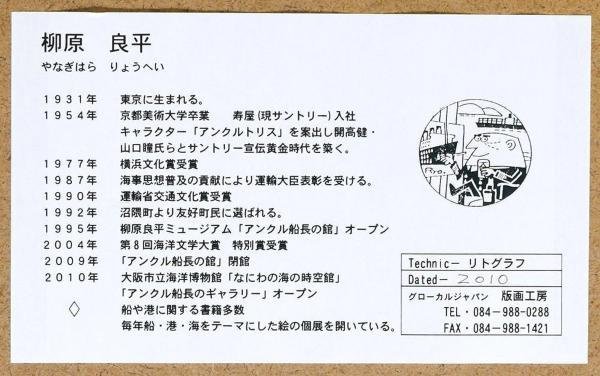 柳原　良平
やなぎはら　りょうへい
１９３１年　東京に生まれる。
１９５４年　京都美術大学卒業　寿屋(現サントリー)入社
キャラクター「アンクルトリス」を案出し開高健・
山口瞳氏らとサントリー宣伝黄金時代を築く。
１９７７年　横浜文化賞受賞
１９８７年　海事思想普及の貢献により運輸大臣表彰を受ける。
１９９０年　運輸省交通文化賞受賞
１９９２年　沼隈町より友好町民に選ばれる。
１９９５年　柳原良平ミュージアム「アンクル船長の館」オープン
２００４年　第８回海洋文学大賞　特別賞受賞
２００９年　「アンクル船長の館」閉館
２０１０年　大阪市立海洋博物館「なにわの海の時空館」
「アンクル船長のギャラリー」オープン
◇　船や港に関する書籍多数
毎年船・港・海をテーマにした絵の個展を開いている。
Technic－ リトグラフ
Dated－ 2010
グローカルジャパン　版画工房
TEL・084-988-0288
FAX・084-988-1421